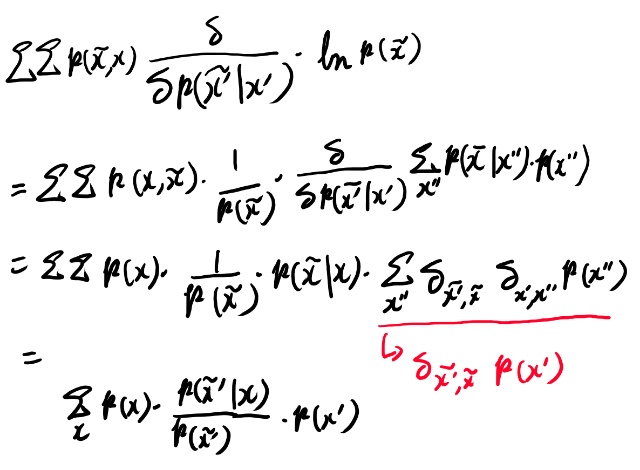 ∑∑ p(x̃,x) δ/δp(x̃'|x') · ln p(x̃)
= ∑∑ p(x,x̃) · 1/p(x̃) · δ/δp(x̃'|x') ∑_{x''} p(x̃|x'') · p(x'')
= ∑∑ p(x) · 1/p(x̃) · p(x̃|x) · ∑_{x''} δ_{x̃',x̃} δ_{x',x''} p(x'')
↳ δ_{x̃',x̃} p(x')
=
∑_x p(x) · p(x̃'|x)/p(x̃') · p(x')